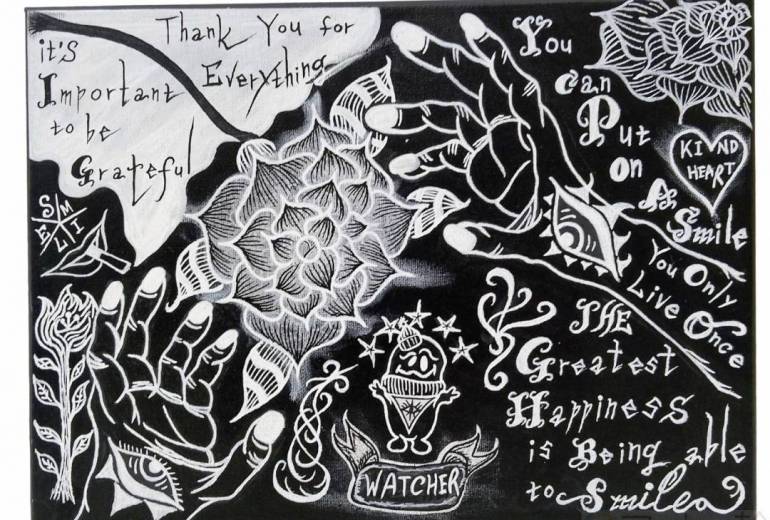 it's
Important
to be
Grateful
Thank You for
Everything
You
Can
Put
on
A
Smile
KIND
HEART
You Only
Live Once
THE
Greatest
Happiness
is Being able
to Smile
WATCHER